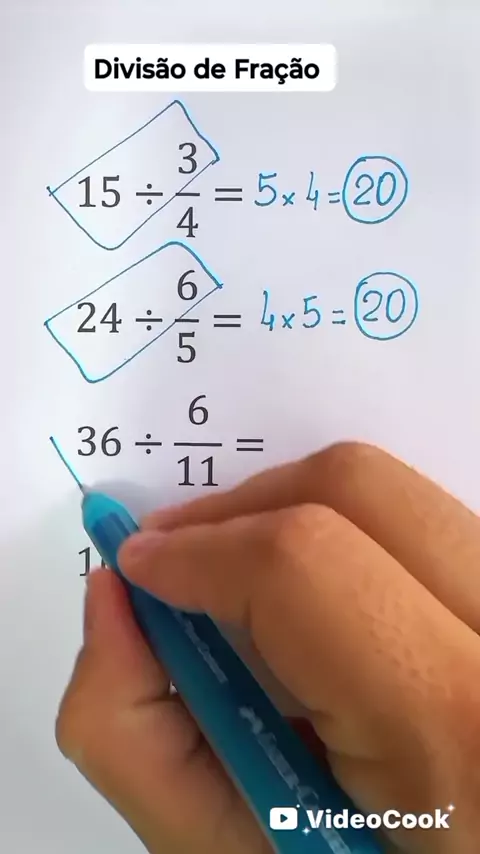 Divisão de Fração
15 ÷ 3/4 = 5 × 4 = 20
24 ÷ 6/5 = 4 × 5 = 20
36 ÷ 6/11 =
VideoCook